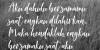 Aku dahulu bersamamu
saat engkau dilahirkan.
Maka hendaklah engkau
bersamaku saat aku